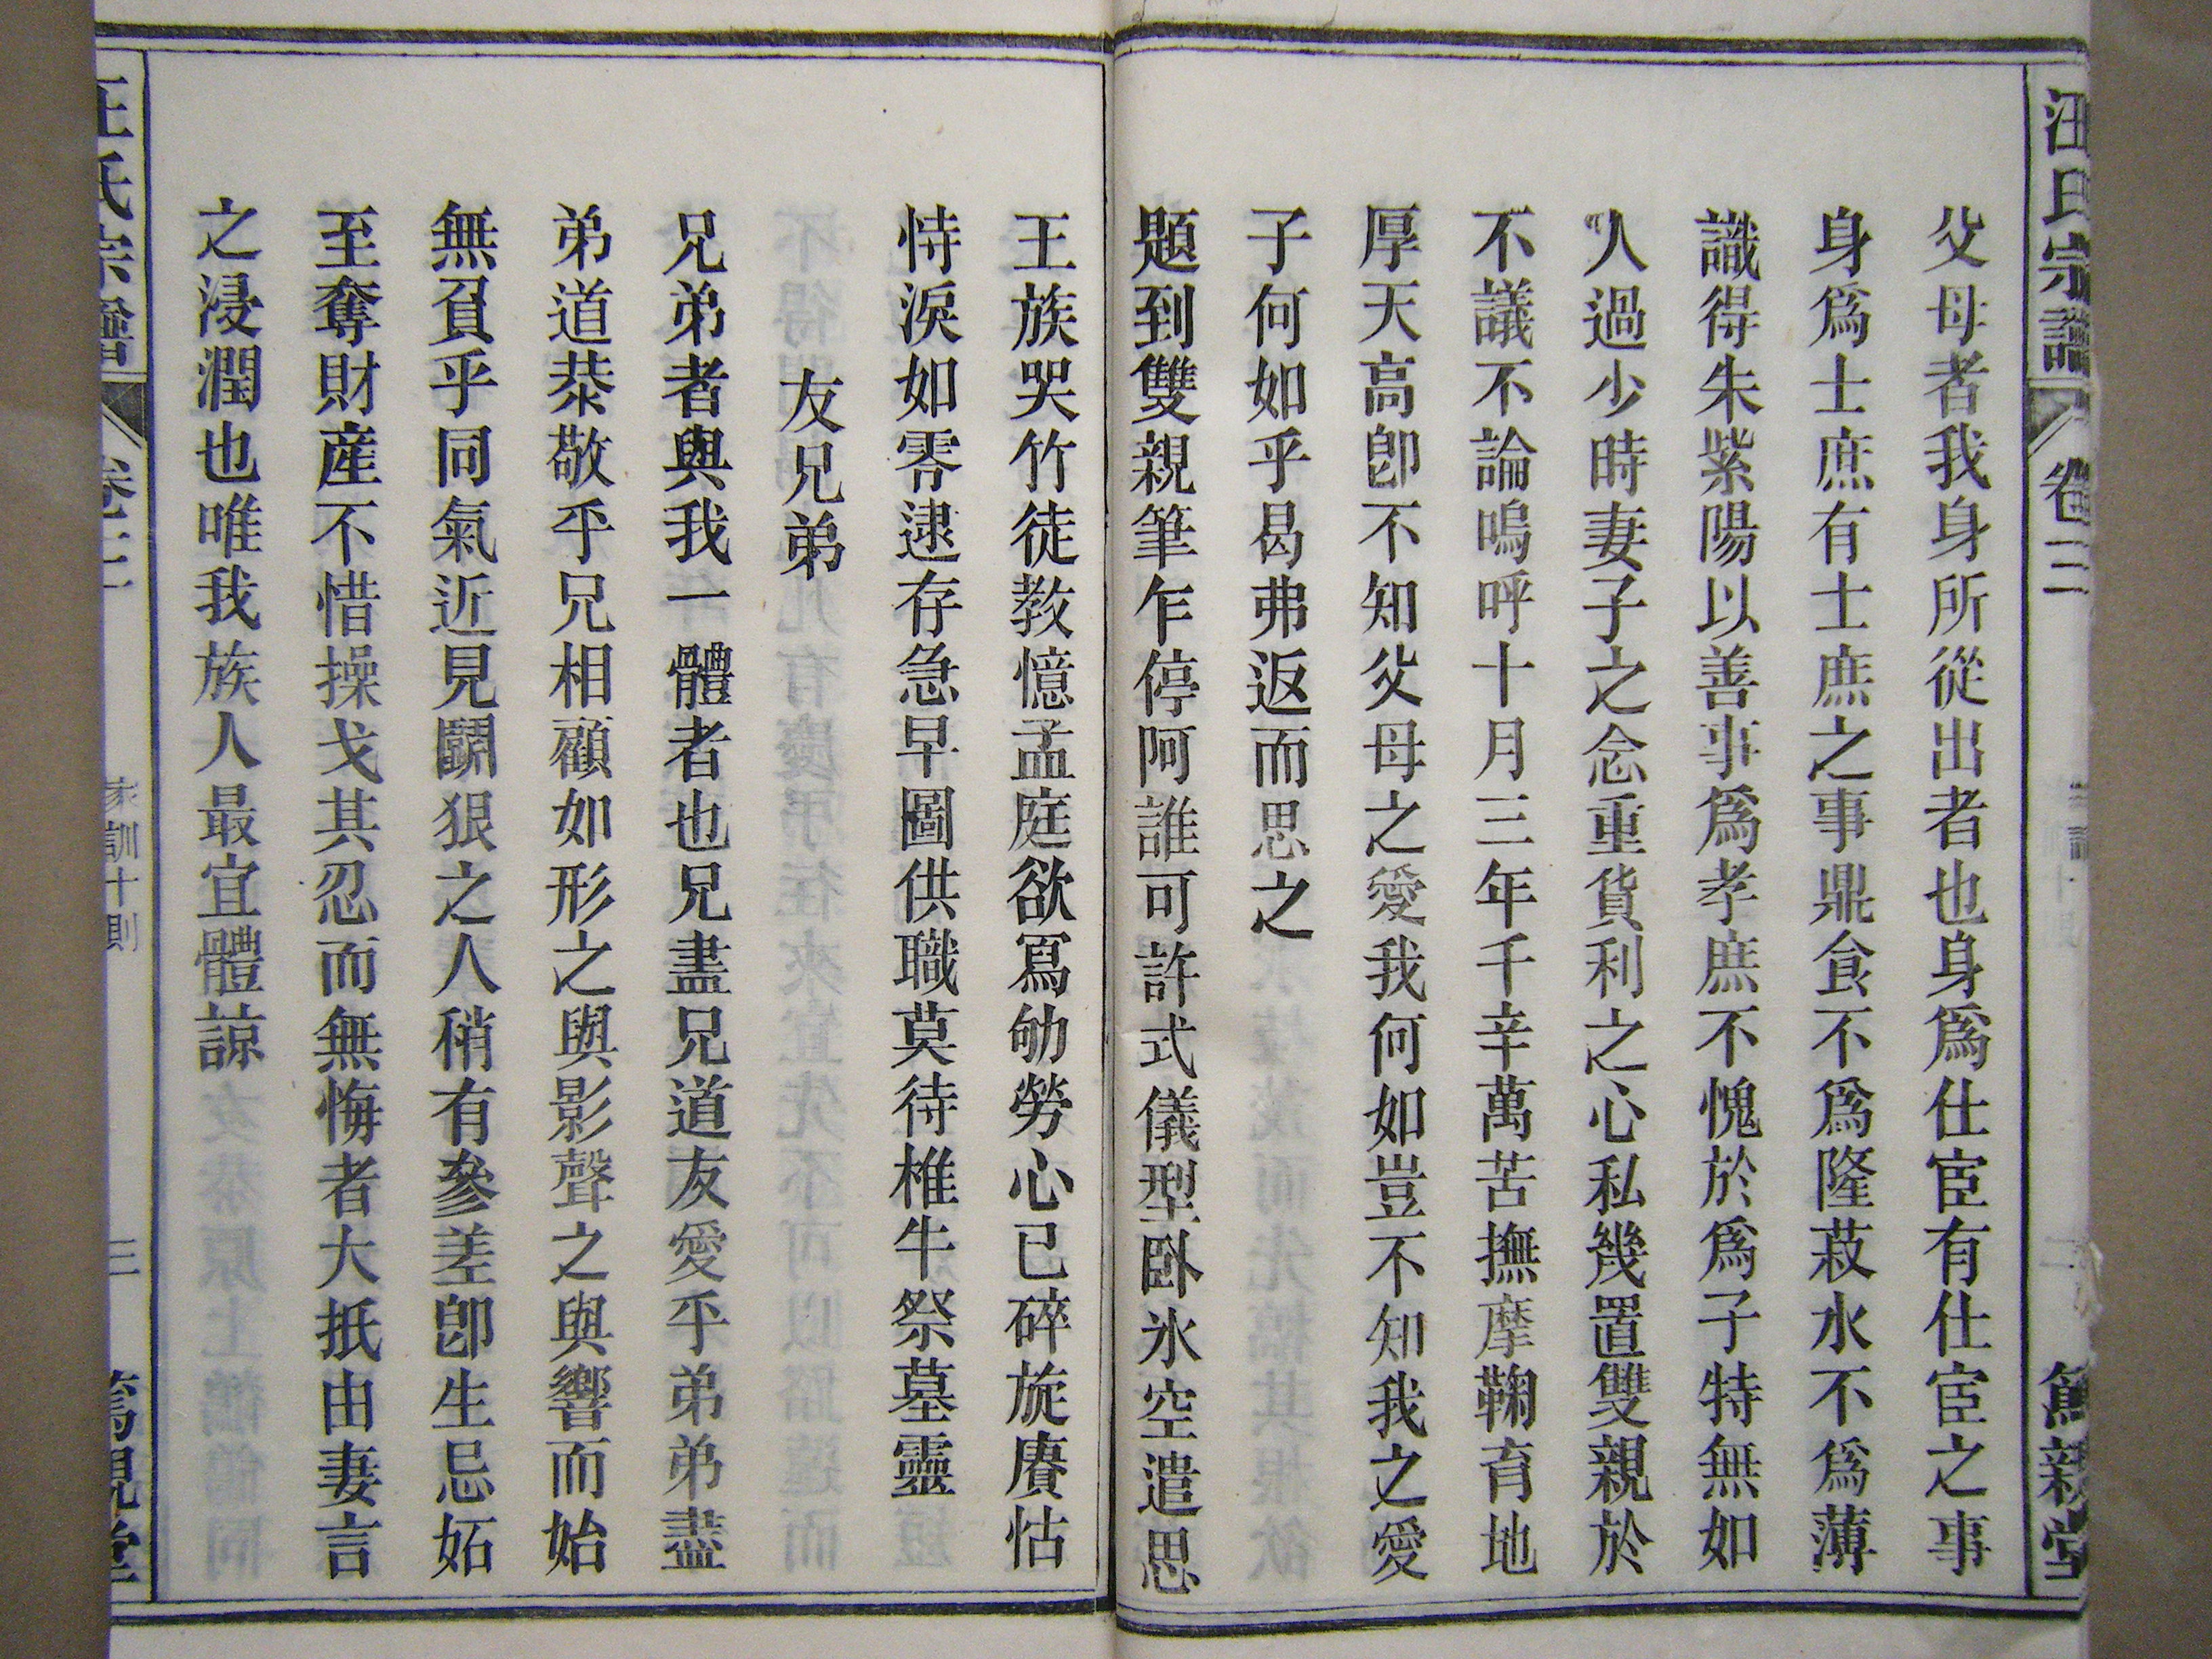 汪氏宗譜 卷三 篤親堂
父母者我身所從出者也身爲仕宦有仕宦之事
身爲士庶有士庶之事鼎食不爲隆菽水不爲薄
識得朱紫陽以善事爲孝庶不愧於爲子特無如
人過少時妻子之念重貨利之心私幾置雙親於
不議不論嗚呼十月三年千辛萬苦撫摩鞠育地
厚天高卽不知父母之愛我何如豈不知我之愛
子何如乎曷弗返而思之
題到雙親筆乍停阿誰可許式儀型臥氷空遣思
王族哭竹徒教憶孟庭欲寫劬勞心已碎旋賡怙
恃淚如零逮存急早圖供職莫待椎牛祭墓靈
友兄弟
兄弟者與我一體者也兄盡兄道友愛乎弟弟盡
弟道恭敬乎兄相顧如形之與影聲之與響而始
無負乎同氣近見鬬狠之人稍有參差卽生忌妬
至奪財產不惜操戈其忍而無悔者大抵由妻言
之浸潤也唯我族人最宜體諒
汪氏宗譜 卷三 家訓十則 三 篤親堂